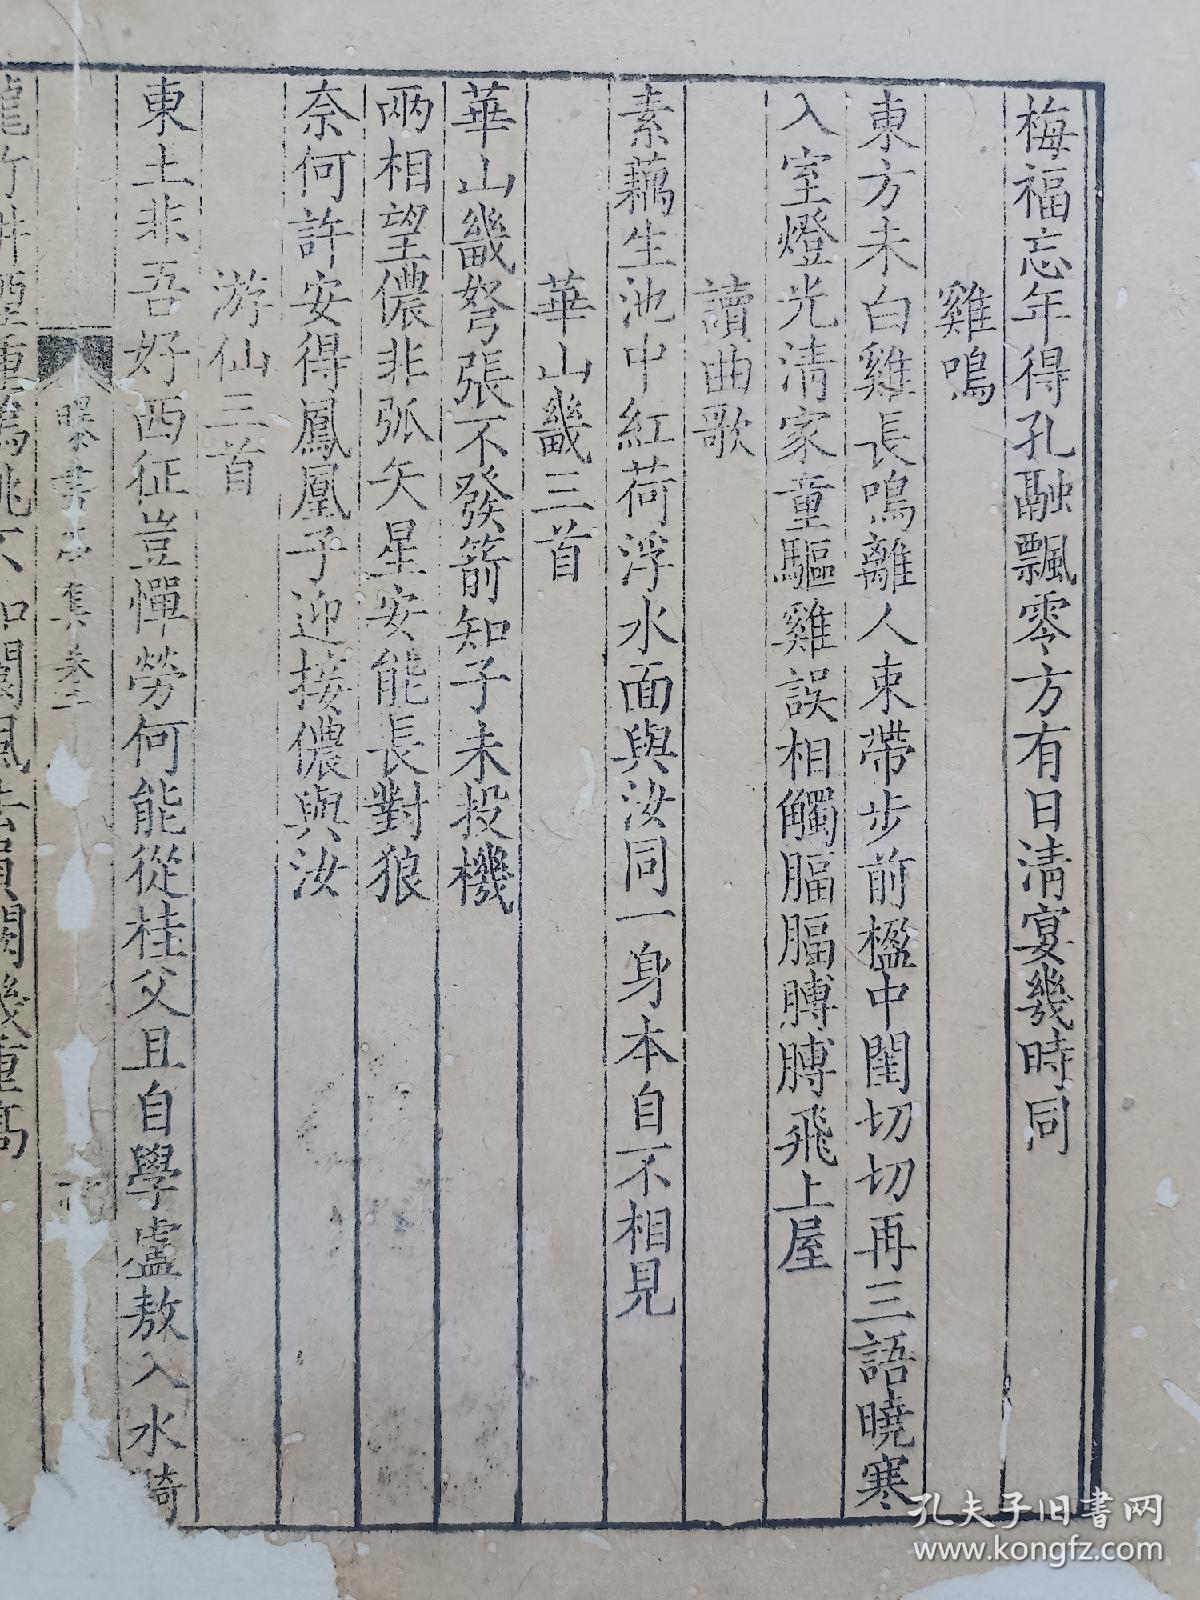 梅福忘年得孔融飄零方有日清宴幾時同
雞鳴
東方未白雞長鳴離人束帶步前楹中閨切切再三語曉寒
入室燈光清家童驅雞誤相觸腷腷膊膊飛上屋
讀曲歌
素藕生池中紅荷浮水面與汝同一身本自不相見
華山畿三首
華山畿弩張不發箭知子未投機
兩相望儂非弧矢星安能長對狼
奈何許安得鳳凰子迎接儂與汝
游仙三首
東土非吾好西征豈憚勞何能從桂父且自學盧敖入水騎
曝書亭集卷二
龍竹
重為
不知閬風去
闕幾重高
孔夫子旧书网
www.kongfz.com